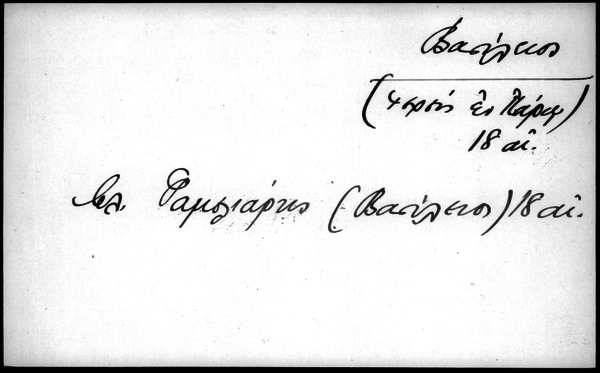 Βασίλειος
(ἱερεὺς ἐν Πάρῳ)
18 αἰ.
βλ. (Βασίλειος) 18 αἰ.